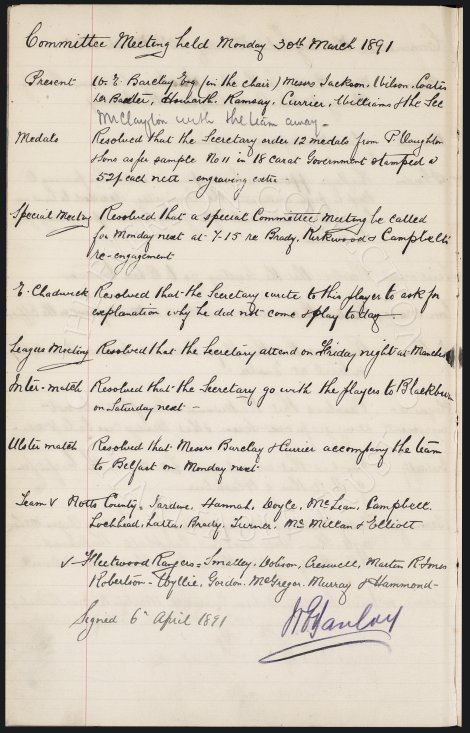 Committee Meeting held Monday 30th March 1891
Present W. E. Barclay Esq (in the chair) Messrs Jackson, Wilson, Coates
Dr Baxter, Howarth, Ramsay, Currier, Williams & the Sec
Mr Clayton with the team away –
Medals Resolved that the Secretary order 12 medals from P. Vaughton
& Sons as per sample No 11 in 18 carat Government stamped @
52/- each nett - engraving extra -
Special Meeting Resolved that a special Committee Meeting be called
for Monday next at 7-15 re Brady, Kirkwood & Campbells
re-engagement
E. Chadwick Resolved that the Secretary write to this player to ask for
explanation why he did not come & play to day –
League Meeting Resolved that the Secretary attend on Friday night at Manches
Inter-match Resolved that the Secretary go with the players to Blackburn
on Saturday next –
Ulster match Resolved that Messrs Barclay & Currier accompany the team
to Belfast on Monday next
Team v Notts County, Jardine, Hannah, Doyle, McLean, Campbell.
Lochhead, Latta, Brady, Turner, McMillan & Elliott
v Fleetwood Rangers - Smalley, Dobson, Cresswell, Martin R. Jones
Robertson - Wyllie, Gordon. McGregor. Murray & Hammond –
Signed 6th April 1891
W E Barclay